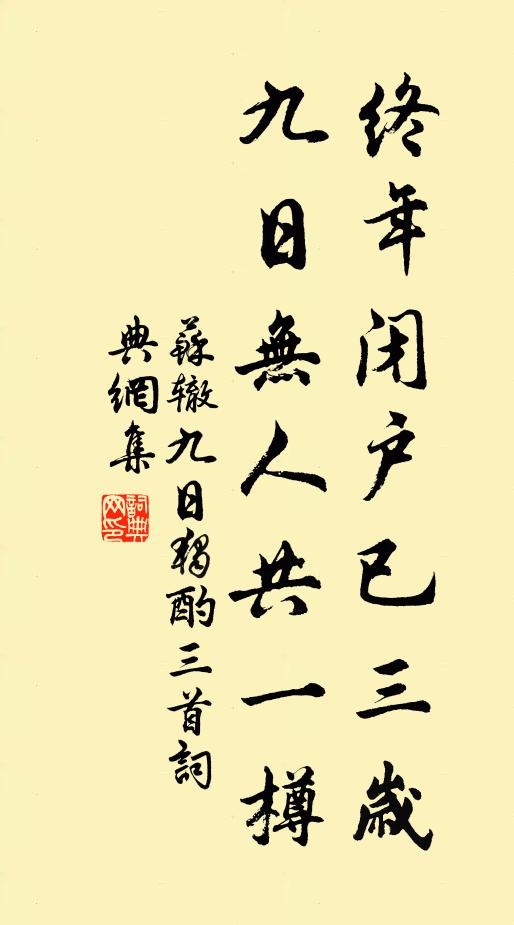 終年闭户已三歲
九日無人共一樽
蘇辙九日獨酌三首詞
典網集
詞典網印